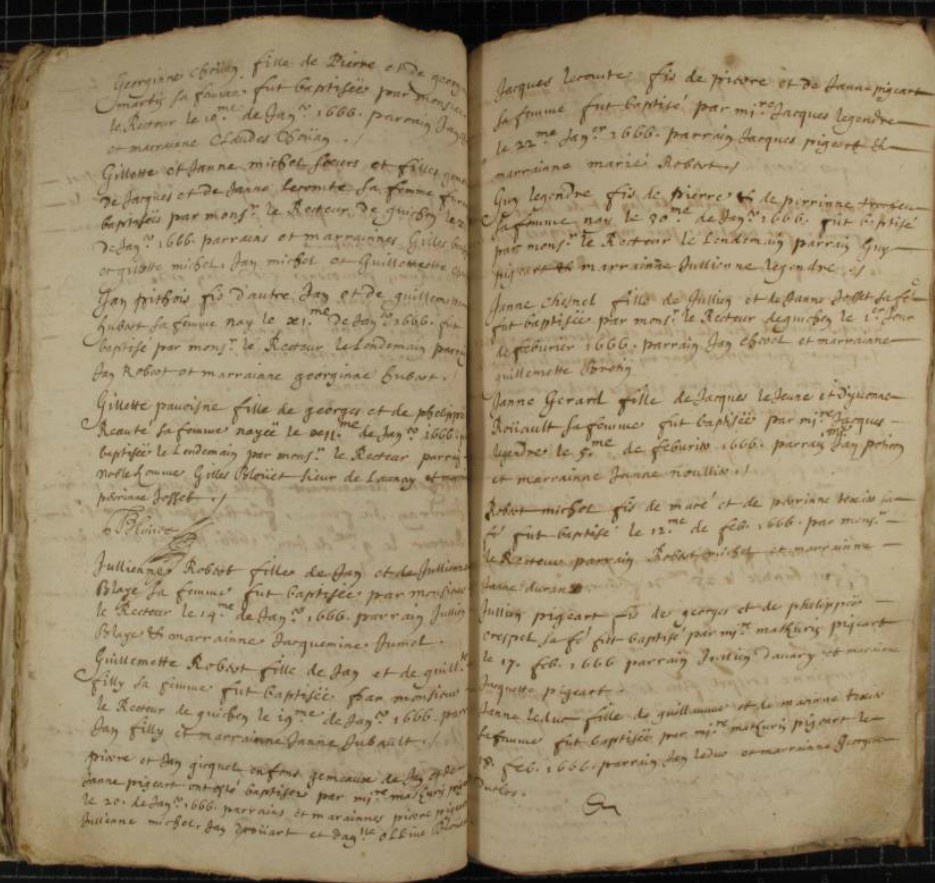 Georginne Chouan fille de Pierre et de georg
martin sa femme fut baptisée par monsieur
le Recteur le 10.me de Jan.er 1666. parrain Jan
et marrainne Claudes Chouan ./
Gillette et Janne michel sœurs et filles geme
de Jacques et de Janne lecomte sa femme furent
baptisées par mons.r le Recteur de guichen le
de Jan.er 1666. parrains et marrainnes Gilles
et gillette michel, Jan michel et Guillemette
Jan pithois fis d'autre Jan et de guillemette
hubert sa femme nay le xi.me de Jan.er 1666. fut
baptisé par mons.r le Recteur le Londemain parrain
Jan Robert et marrainne georginne hubert ./
Gillette pavoisne fille de georges et de phelippe
Reauté sa femme nayee le xii.me de Jan.er 1666.
baptisée le Londemain par mons.r le Recteur parrain
noble homme Gilles Blouet sieur de Launay et mar
perrinne Josset ./
Blouet
Jullienne Robert fille de Jan et de Jullienne
Blaye sa femme fut baptisée par monsieur
le Recteur le 14.me de Jan.er 1666. parrain Jullien
Blaye & marrainne Jacquemine Jumel.
Guillemette Robert fille de Jan et de guill.te
filly sa femme fut baptisée par monsieur
le Recteur de guichen le 19.me de Jan.er 1666. parr
Jan filly et marrainne Janne Jubault ./
pierre et Jan gicquel enfans gemeaux de Jan et de
Janne pigeart ont esté baptisez par mi.re mathurin pigeart
le 20. de Jan.er 1666. parrains et marainnes pierre pigeart
Jullienne michel, Jan drouart et dam.lle ollive Blouet
Jacques lecomte fis de pierre et de Janne pigeart
sa femme fut baptisé par mi.re Jacques legendre
le 22.me Jan.er 1666. parrain Jacques pigeart &
marrainne marie Robert ./
Guy legendre fis de pierre & de perrinne
sa femme nay le 30.me de Jan.er 1666. fut baptisé
par mons.r le Recteur le Londemain parrain Guy
pigeart & marrainne Jullienne legendre ./
Janne Chesnel fille de Jullien et de Janne Josset sa fe
fut baptisée par mons.r le Recteur de guichen le 1.er Jour
de feburier 1666. parrain Jan Chevel et marrainne
guillemette Brehin
Janne Gerard fille de Jacques le Jeune et d'yvonne
Roüault sa femme fut baptisée par mi.re Jacques
legendre le 5.me de feburier 1666. parrain mi.re Jan potion
et marrainne Janne noullin ./
Robert michel fis de macé et de perrinne texier sa
fe fut baptisé le 12.me de feb. 1666. par mons.r
le Recteur parrain Robert michel et marrainne
Janne duran
Jullien pigeart fis de georges et de phelippes
crespel sa fe fut baptisé par mi.re mathurin pigeart
le 17. feb. 1666 parrain Jullien davary et maraine
Jacquette pigeart.
Janne leduc fille de guillaume et de marinne texier
sa femme fut baptisée par mi.re mathurin pigeart le
18. feb. 1666. parrain Jan leduc et marrainne Jacquette
Duclos.